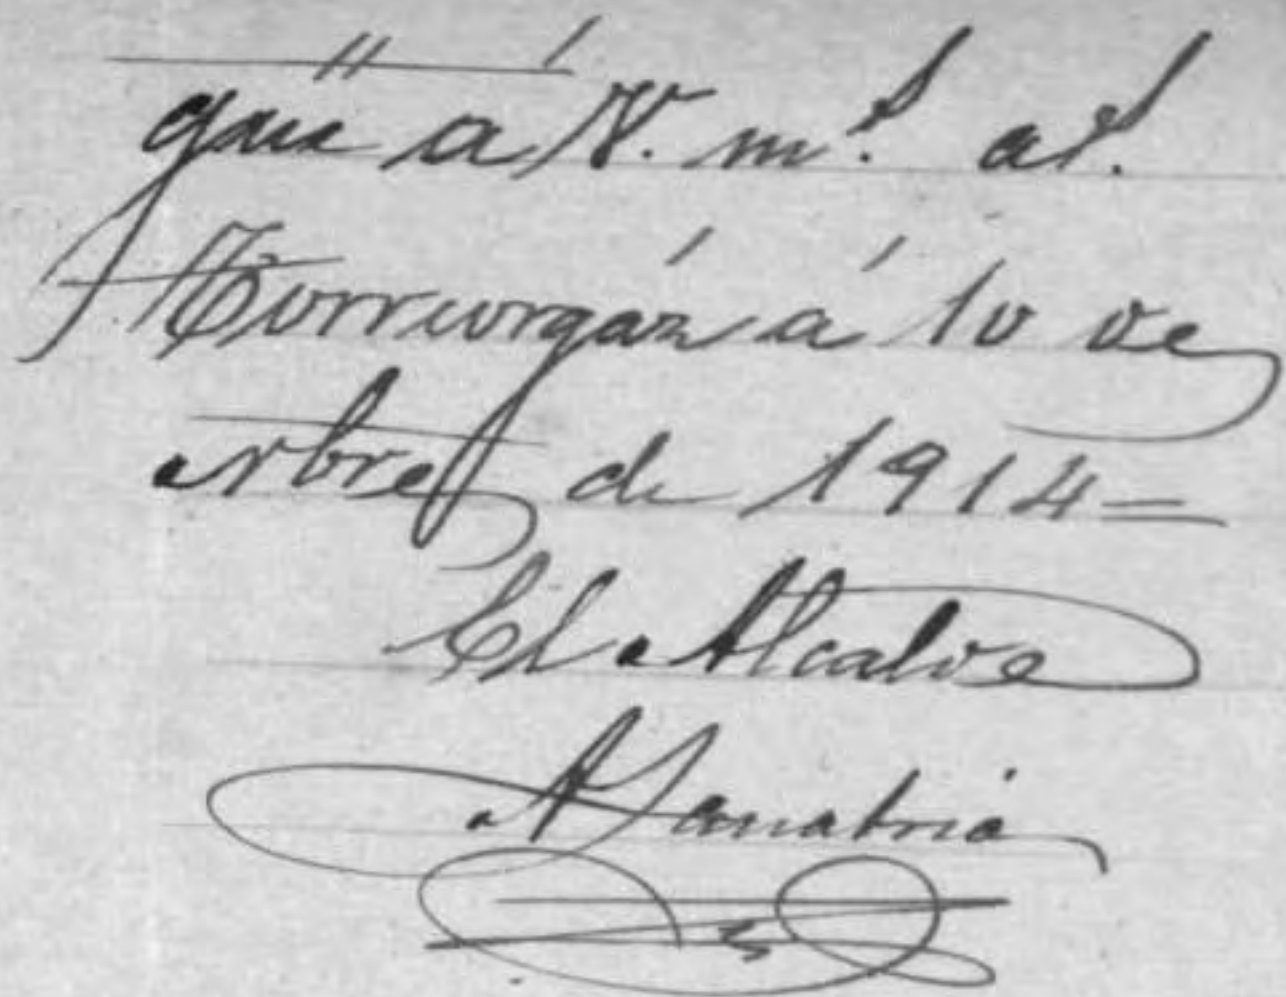 güe á V. m.ˢ aˢ.
Torreorgáz á 10 de
Nbre de 1914=
El Alcalde
A Sanabria